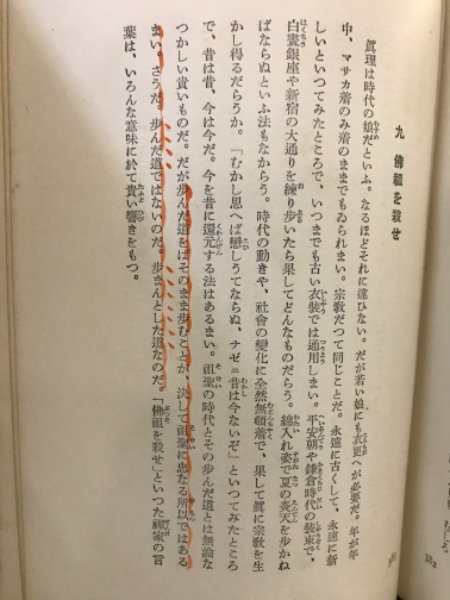 九　佛祖を殺せ
眞理は時代の娘だといふ。なるほどそれに違ひない。だが若い娘にも衣更へが必要だ。年が年
中、マサカ着のみ着のままでもゐられまい。宗敎だつて同じことだ。永遠に古くして、永遠に新
しいといつてみたところで、いつまでも古い衣裝では通用しまい。平安朝や鎌倉時代の裝束で、
白晝銀座や新宿の大通りを練り步いたら果してどんなものだらう。綿入れ姿で夏の炎天を步かね
ばならぬといふ法もなからう。時代の動きや、社會の變化に全然無頓着で、果して眞に宗敎を生
かし得るだらうか。「むかし思へば戀しうてならぬ、ナゼニ昔は今ないぞ」といつてみたところ
で、昔は昔、今は今だ。今を昔に還元する法はあるまい。祖聖の時代とその步んだ道とは無論な
つかしい貴いものだ。だが步んだ道をばそのまま步むことが、決して祖聖に忠なる所以ではある
まい。さうだ。步んだ道ではないのだ。步まんとした道なのだ。「佛祖を殺せ」といつた禪家の言
葉は、いろんな意味に於て貴い響きをもつ。